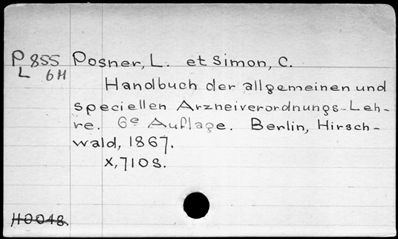 P 855 Posner, L. et Simon, C.
L 6H
Handbuch der allgemeinen und
speciellen Arzneiverordnungs-Leh-
re. 6e Auflage. Berlin, Hirsch-
wald, 1867.
X, 710 S.
H0048